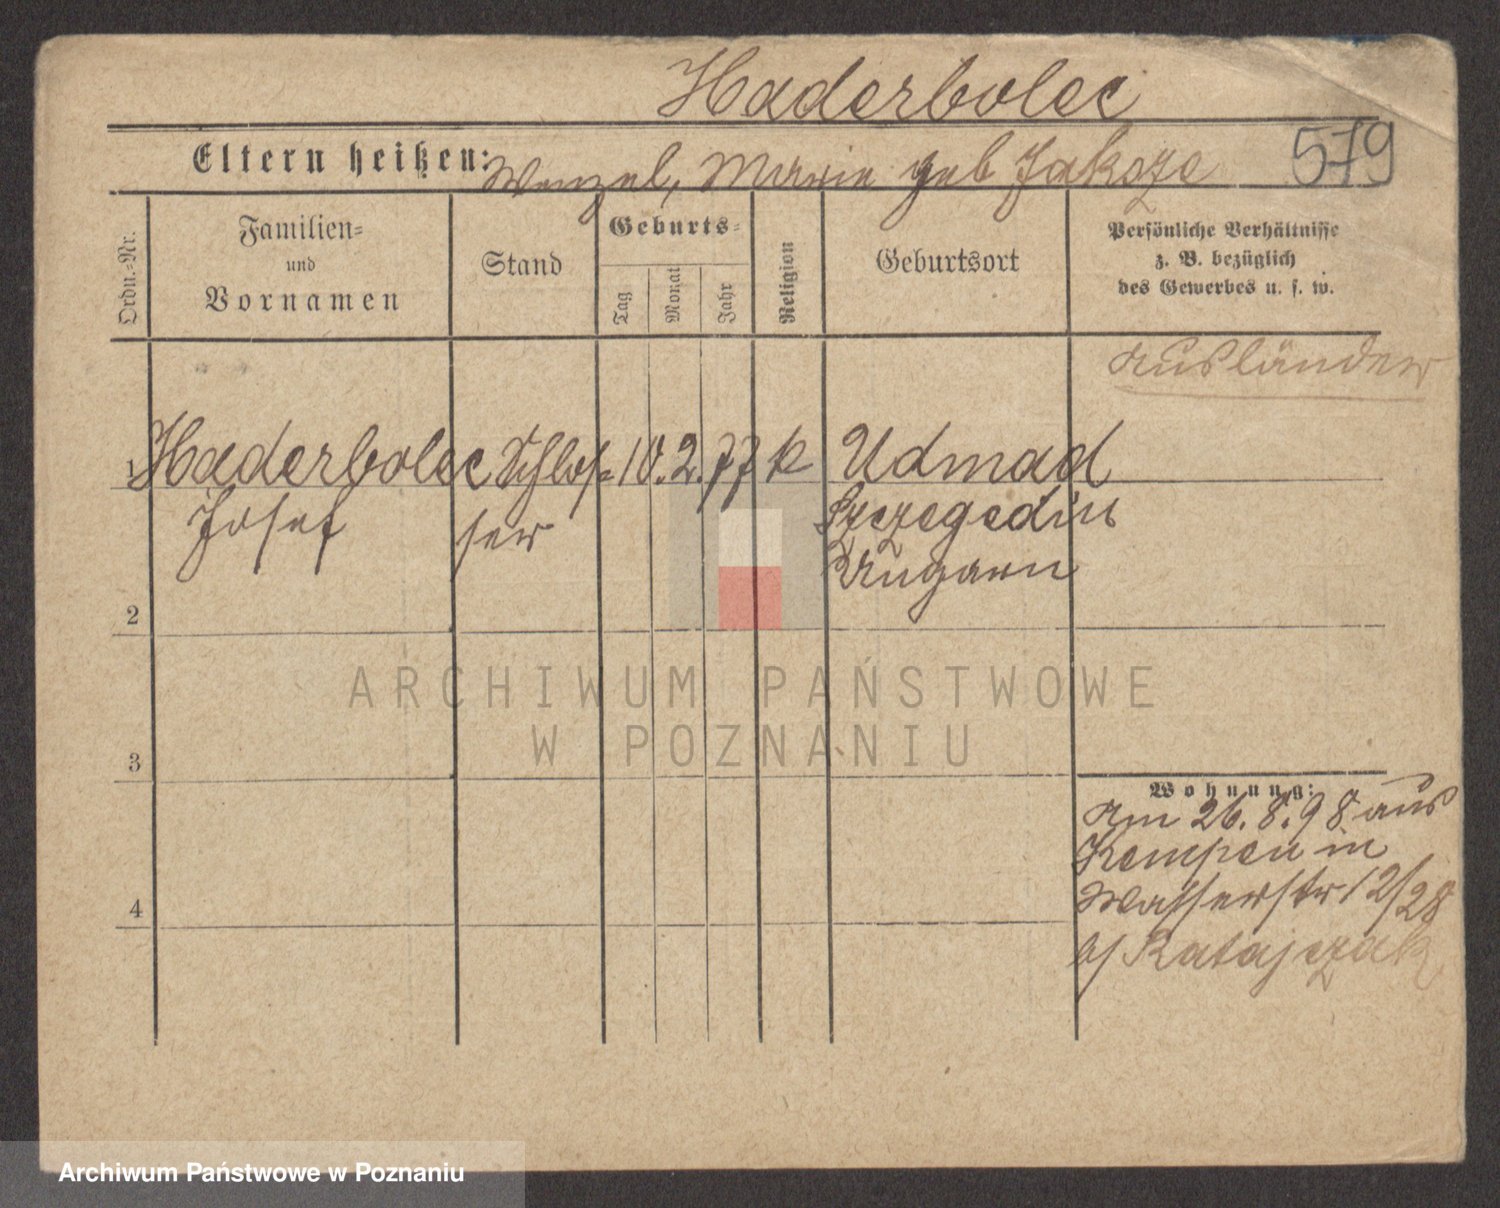 Haderbolec
Eltern heißen: Wenzel, Marie geb Jaksze 579
Ordn.=Nr.
Familien=
und
Vornamen
Stand
Geburts=
Tag
Monat
Jahr
Religion
Geburtsort
Persönliche Verhältnisse
z. B. bezüglich
des Gewerbes u. s. w.
Ausländer
1 Haderbolec Schlos= 10. 2. 77 k Udmad
Josef ser Szczegedin
Ungarn
2
ARCHIWUM PAŃSTWOWE
W POZNANIU
3
Wohnung:
Am 26. 8. 98 aus
Kempen in
4 Wasserstr 12/28
b/ Ratajczak
Archiwum Państwowe w Poznaniu